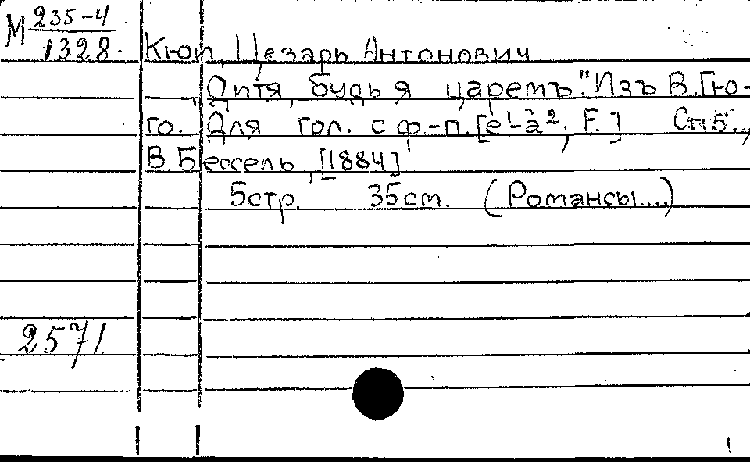 М 235-4
1328.
Кюи, Цезарь Антонович
"Дитя, будь я царемъ". Изъ В. Гю-
го. Для гол. с ф.-п. [e¹-a², F.] Спб.,
В. Бессель, [1884]
5стр. 35см. (Романсы....)
2571